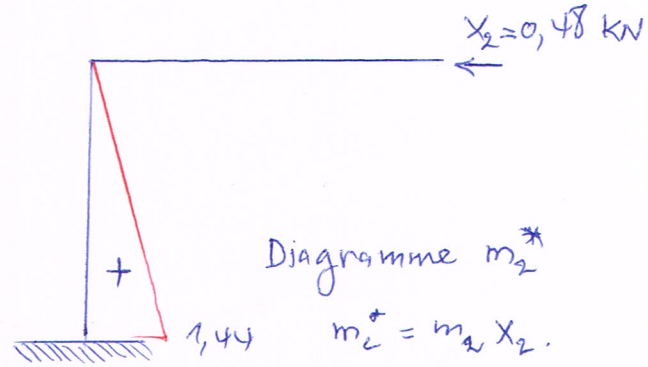 X₂=0,48 KN
+
Diagramme m₂*
1,44
m₂* = m₂ X₂.